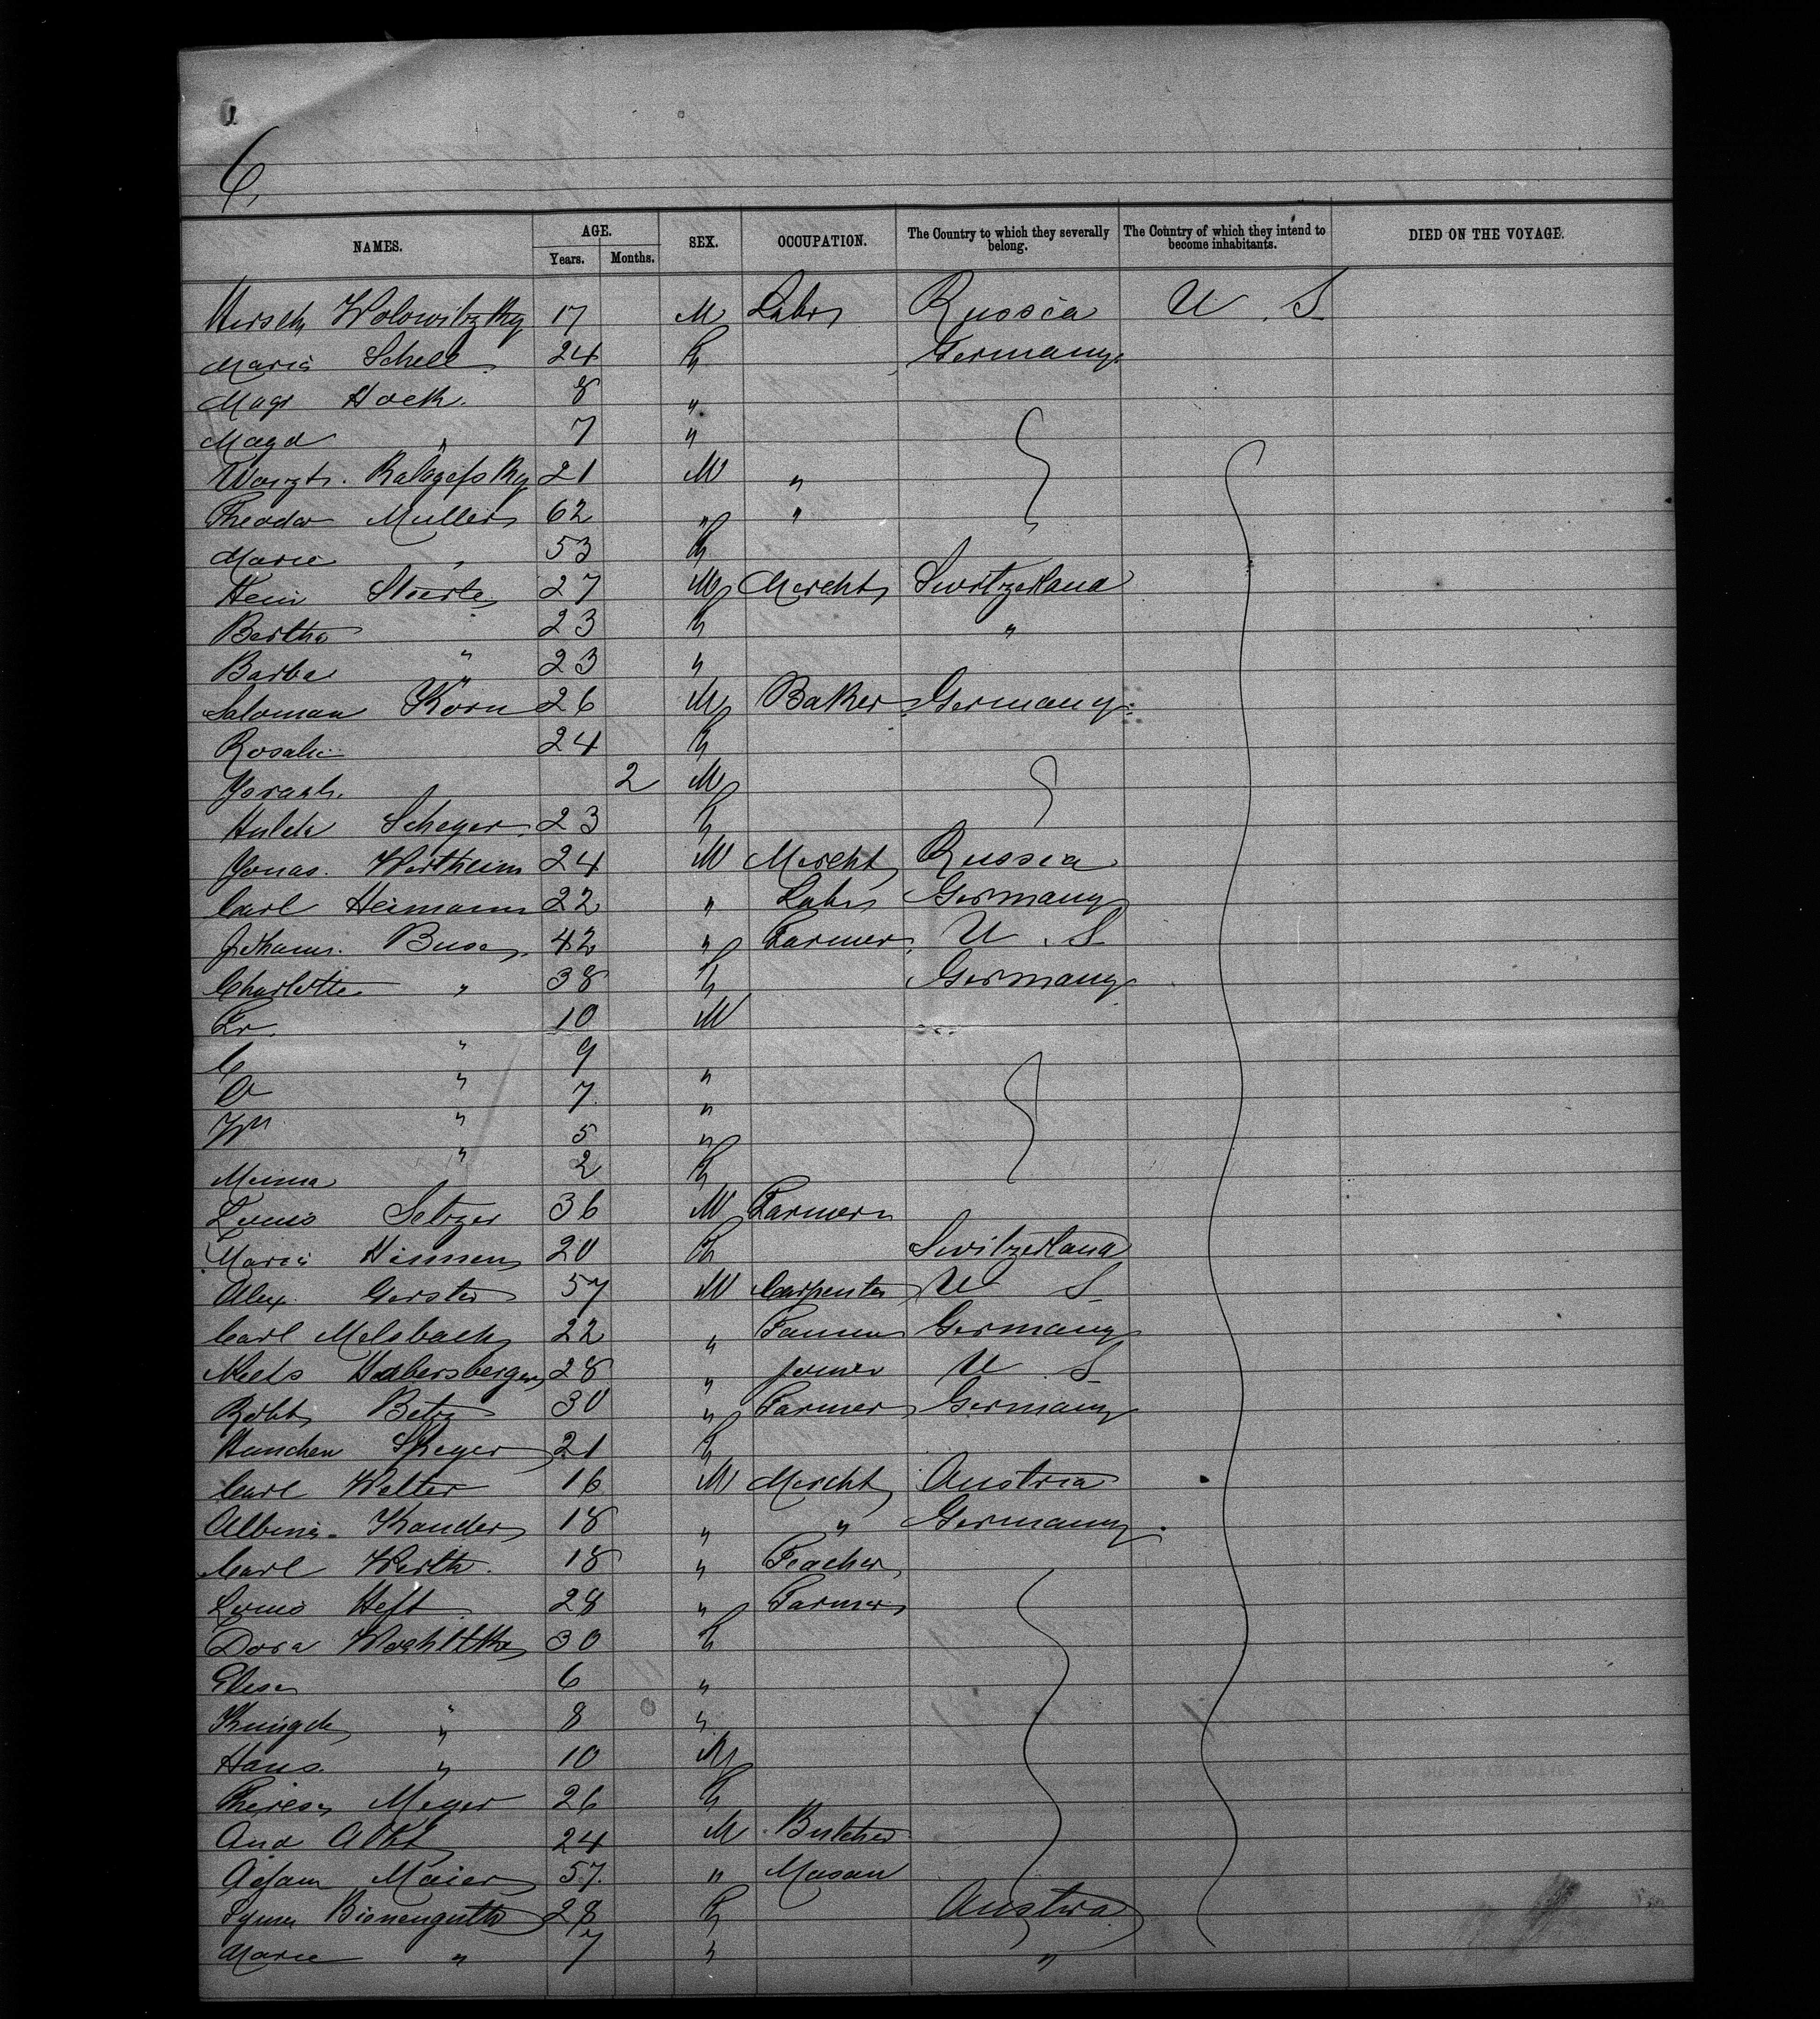 6
NAMES. AGE. Years. Months. SEX. OCCUPATION. The Country to which they severally belong. The Country of which they intend to become inhabitants. DIED ON THE VOYAGE.
Hersch 17 M Labr Russia U. S
Maria Schell 24 Germany
8 "
Magd " 7 "
21 M "
Theodor Muller 62 " "
Marie " 53
27 M Mercht Switzerland
Bertha " 23 "
Barba " 23 "
Saloman Korn 26 M Baker Germany
Rosalie 24
2 M
Hulda Scheyer 23
Jonas Wertheim 24 M Mercht Russia
Carl Heimann 22 " Labr Germany
42 " Farmer U. S
Charlotte " 38 Germany
10 M
C " 9
" 7 "
Wm " 5 "
Minna " 2
Louis 36 M Farmer
Maria 20 Switzerland
Alex Gerster 57 M Carpenter U S
Carl Melsbach 22 " Germany
28 " U S
Robt Betz 30 " Farmer Germany
21
Carl Walter 16 M Mercht Austria
18 " " Germany
Carl Werth 18 " Teacher
Louis Heft 28 " Farmer
Dora 30
Elisa 6 "
" 8 "
Hans " 10 M
Theresa Meyer 26
24 M Butcher
Adam Maier 57 " Mason
Bienenguth 28 Austria
Marie " 7 " "